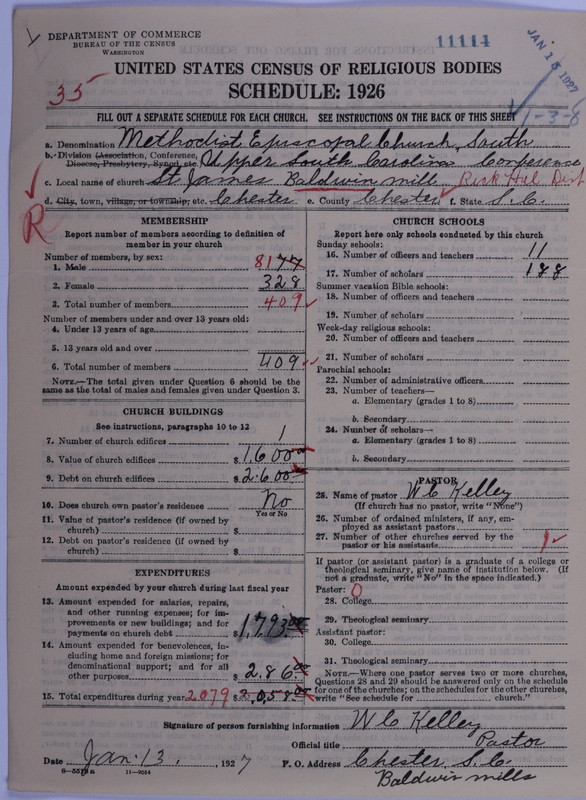 DEPARTMENT OF COMMERCE
BUREAU OF THE CENSUS
WASHINGTON
11114
JAN 15 1927
1-3-8
UNITED STATES CENSUS OF RELIGIOUS BODIES
35
SCHEDULE: 1926
FILL OUT A SEPARATE SCHEDULE FOR EACH CHURCH. SEE INSTRUCTIONS ON THE BACK OF THIS SHEET
a. Denomination Methodist Episcopal Church, South
b. Division (Association, Conference, Diocese, Presbytery, Synod, etc. Upper South Carolina Conference
c. Local name of church St James Baldwin mill Rock Hill Dist
d. City, town, village, or township, etc. Chester e. County Chester f. State S.C.
R
MEMBERSHIP
Report number of members according to definition of member in your church
Number of members, by sex:
1. Male 81 77
2. Female 328
3. Total number of members 409
Number of members under and over 13 years old:
4. Under 13 years of age
5. 13 years old and over
6. Total number of members 409
NOTE.—The total given under Question 6 should be the same as the total of males and females given under Question 3.
CHURCH BUILDINGS
See instructions, paragraphs 10 to 12
7. Number of church edifices 1
8. Value of church edifices $ 1,600.00
9. Debt on church edifices $ 2,600.00
10. Does church own pastor's residence No
Yes or No
11. Value of pastor's residence (if owned by church) $
12. Debt on pastor's residence (if owned by church) $
EXPENDITURES
Amount expended by your church during last fiscal year
13. Amount expended for salaries, repairs, and other running expenses; for improvements or new buildings; and for payments on church debt $ 1,793.00
14. Amount expended for benevolences, including home and foreign missions; for denominational support; and for all other purposes $ 286.00
15. Total expenditures during year 2079 $ 2,058.00
CHURCH SCHOOLS
Report here only schools conducted by this church
Sunday schools:
16. Number of officers and teachers 11
17. Number of scholars 188
Summer vacation Bible schools:
18. Number of officers and teachers
19. Number of scholars
Week-day religious schools:
20. Number of officers and teachers
21. Number of scholars
Parochial schools:
22. Number of administrative officers
23. Number of teachers—
a. Elementary (grades 1 to 8)
b. Secondary
24. Number of scholars—
a. Elementary (grades 1 to 8)
b. Secondary
PASTOR
25. Name of pastor W C Kelley
(If church has no pastor, write "None")
26. Number of ordained ministers, if any, employed as assistant pastors
27. Number of other churches served by the pastor or his assistants 1
If pastor (or assistant pastor) is a graduate of a college or theological seminary, give name of institution below. (If not a graduate, write "No" in the space indicated.)
Pastor: 0
28. College
29. Theological seminary
Assistant pastor:
30. College
31. Theological seminary
NOTE.—Where one pastor serves two or more churches, Questions 28 and 29 should be answered only on the schedule for one of the churches; on the schedules for the other churches, write "See schedule for church."
Signature of person furnishing information W C Kelley
Official title Pastor
Date Jan. 13, 1927 P. O. Address Chester S.C.
Baldwin mills
11—9054